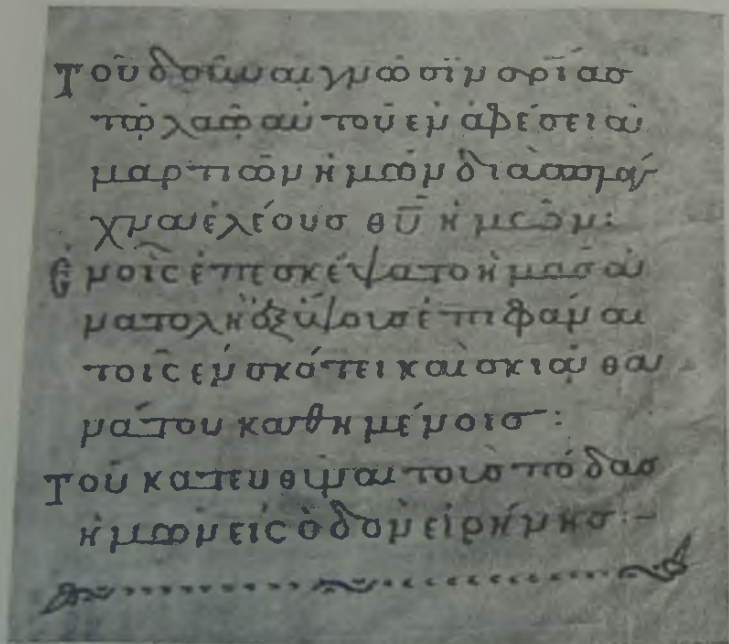 Τοῦ δοῦναι γνῶσιν σρίασ
τῷ λαῷ αὐτοῦ ἐν ἀφέσει ἁ
μαρτιῶν ἡμῶν διὰ σπλά
χνα ἐλέουσ θῡ ἡμῶν:
Ἐν οἷς ἐπεσκέψατο ἡμᾶσ ἀ
νατολὴ ἐξ ὕψουσ ἐπιφᾶναι
τοῖς ἐν σκότει καὶ σκιᾷ θα
νάτου καθημένοισ:
Τοῦ κατευθῦναι τοὺσ πόδασ
ἡμῶν εἰς ὁδὸν εἰρήνησ:~